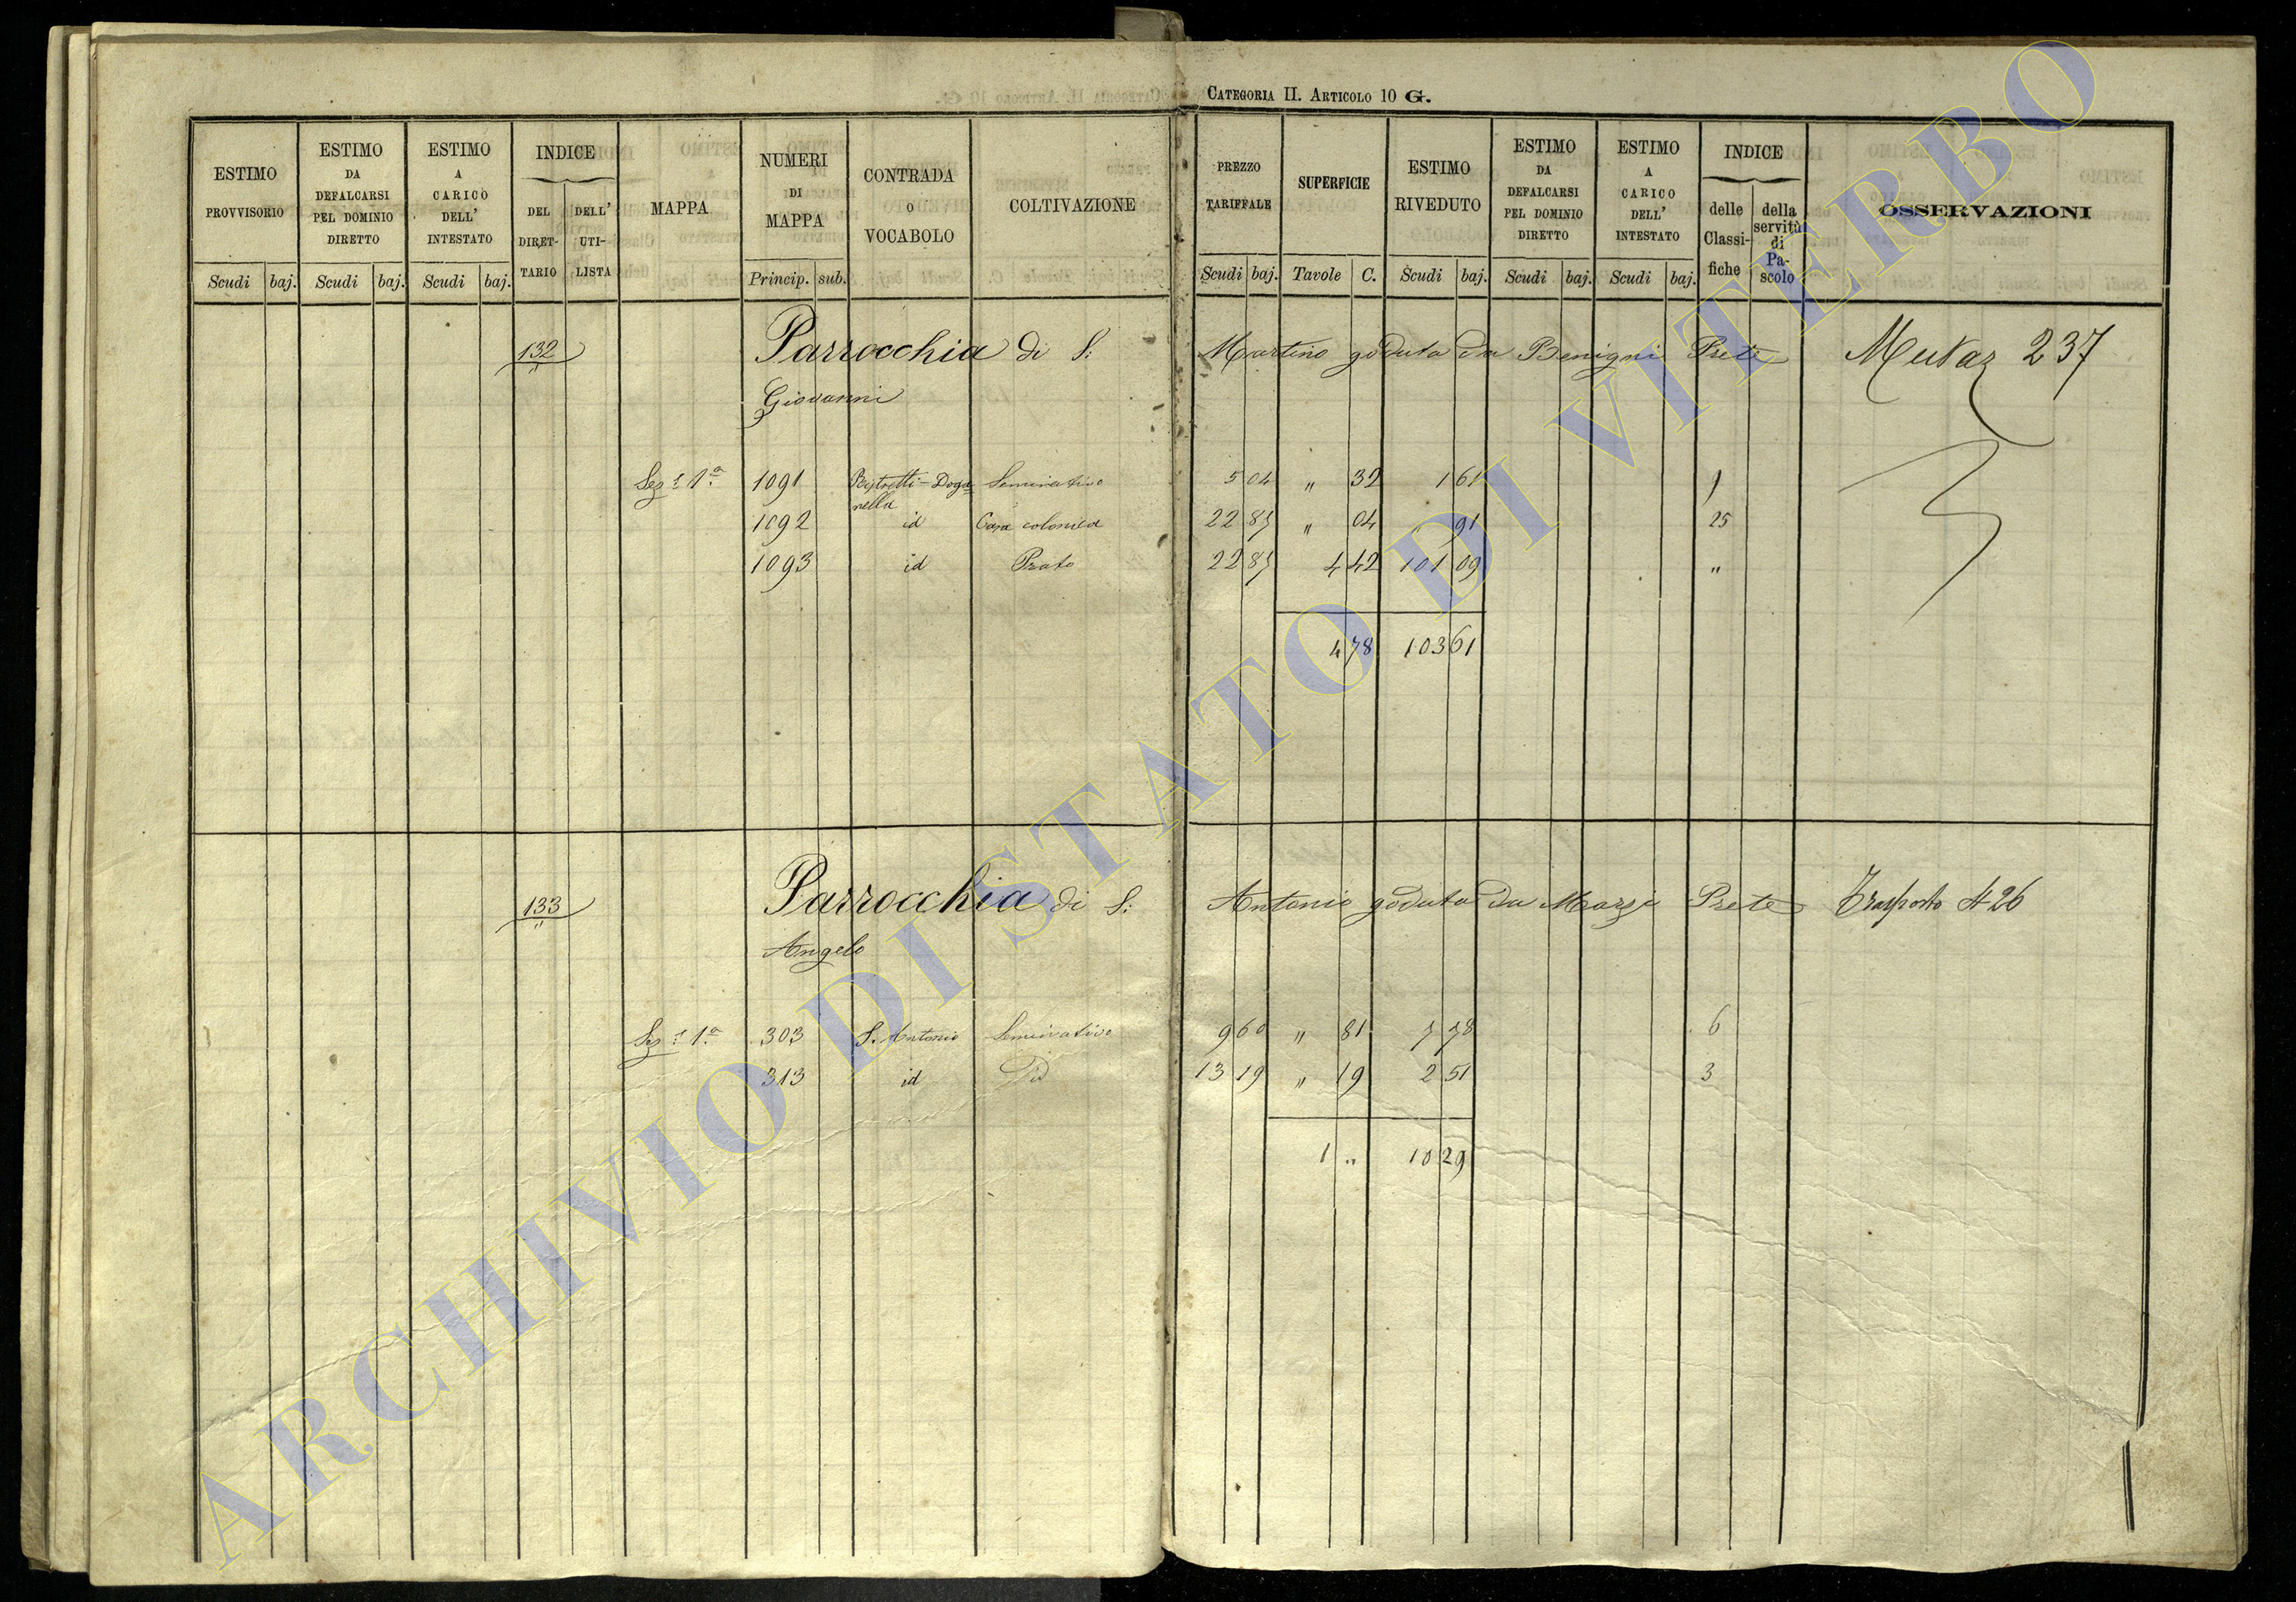 CATEGORIA II. ARTICOLO 10 G.
ESTIMO PROVVISORIO Scudi baj.
ESTIMO DA DEFALCARSI PEL DOMINIO DIRETTO Scudi baj.
ESTIMO A CARICO DELL' INTESTATO Scudi baj.
INDICE DEL DIRET-TARIO DELL' UTI-LISTA
MAPPA
NUMERI DI MAPPA Princip. sub.
CONTRADA O VOCABOLO
COLTIVAZIONE
PREZZO TARIFFALE Scudi baj.
SUPERFICIE Tavole C.
ESTIMO RIVEDUTO Scudi baj.
ESTIMO DA DEFALCARSI PEL DOMINIO DIRETTO Scudi baj.
ESTIMO A CARICO DELL' INTESTATO Scudi baj.
INDICE delle Classi-fiche della servitù di Pa-scolo
OSSERVAZIONI
132 Parrocchia di S: Martino goduta da Benigni Prete 237
Giovanni
Sez: 1a 1091 Seminativo 5 04 " 32 1 61 1
nella
1092 id Casa colonica 22 87 " 04 91 25
1093 id Prato 22 87 4 42 101 09 "
4 78 103 61
133 Parrocchia di S: Antonio goduta da Marzi Prete Trasporto 426
Angelo
Sez: 1a 303 S. Antonio Seminativo 9 60 " 81 7 78 6
313 id Id 13 19 " 19 2 51 3
1 " 10 29
ARCHIVIO DI STATO DI VITERBO